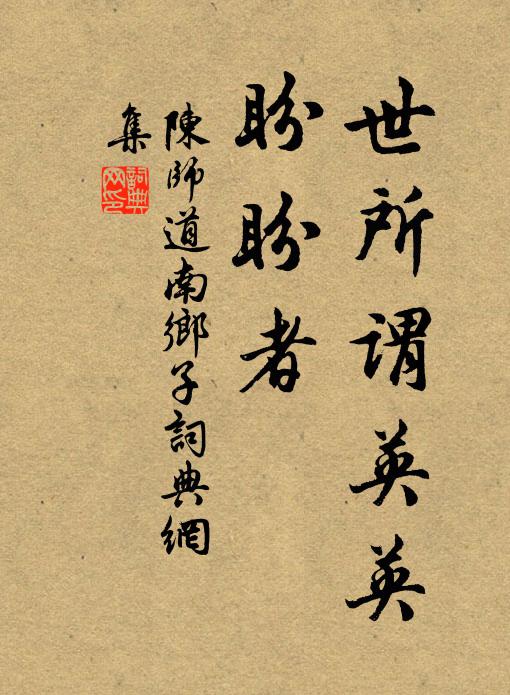 世所谓英英
盼盼者
陳師道南鄉子詞典網
集
詞典
网印